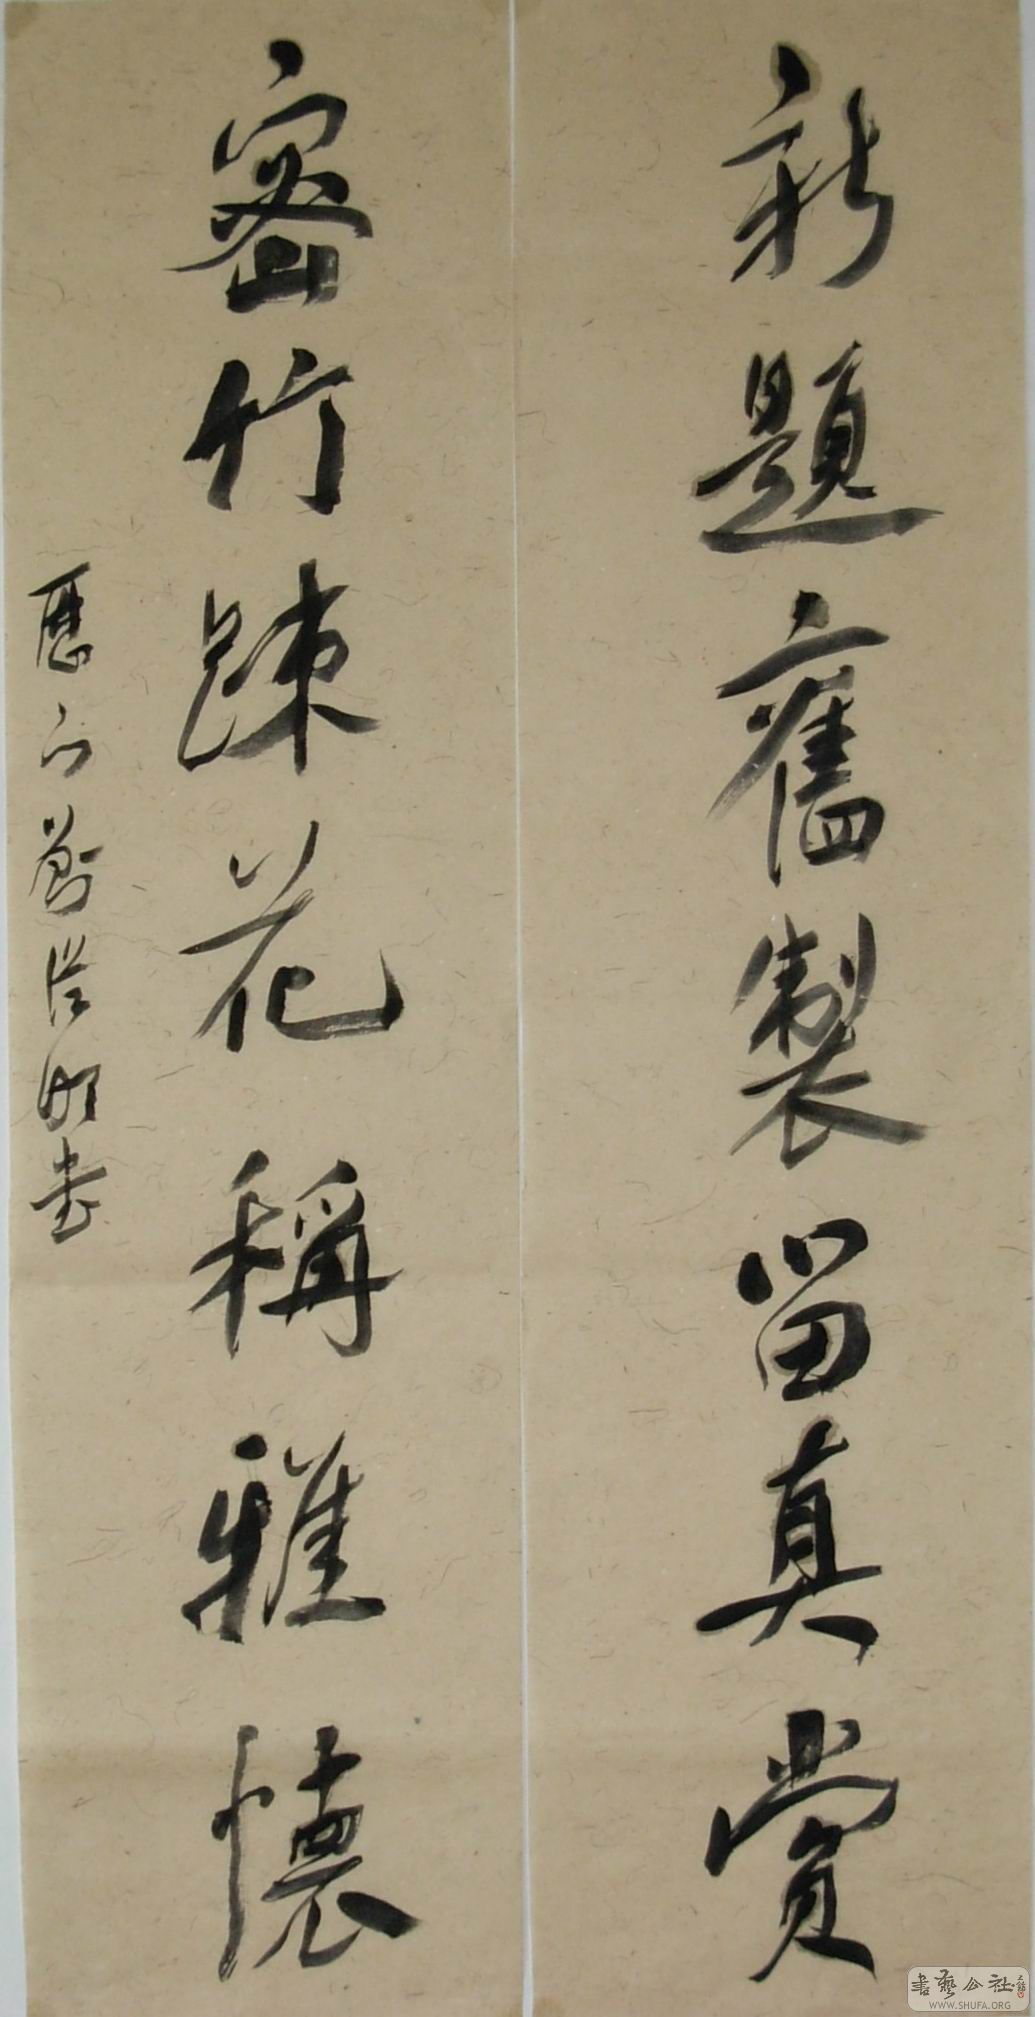 新題舊製留真賞
密竹踈花稱雅懷
書藝公社
WWW.SHUFA.ORG